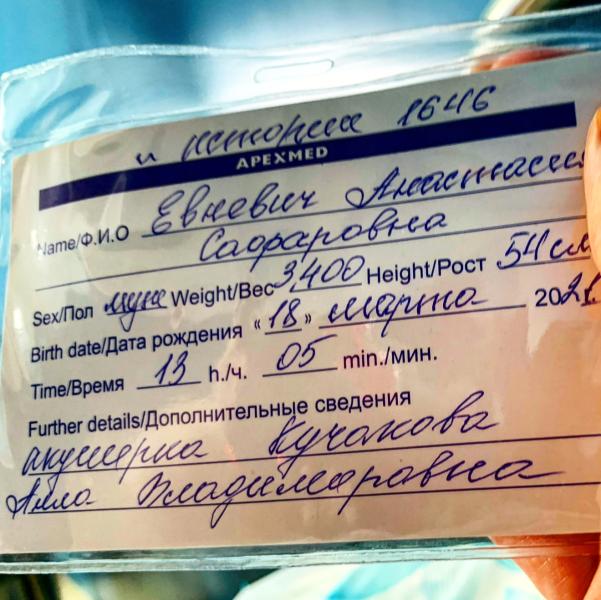 и история 1646
APEXMED
Name/Ф.И.О Евневич Анастасия
Сафаровна
Sex/Пол муж Weight/Вес 3,400 Height/Рост 54см
Birth date/Дата рождения «18» марта 2021.
Time/Время 13 h./ч. 05 min./мин.
Further details/Дополнительные сведения
акушерка Кучакова
Алла Владимировна